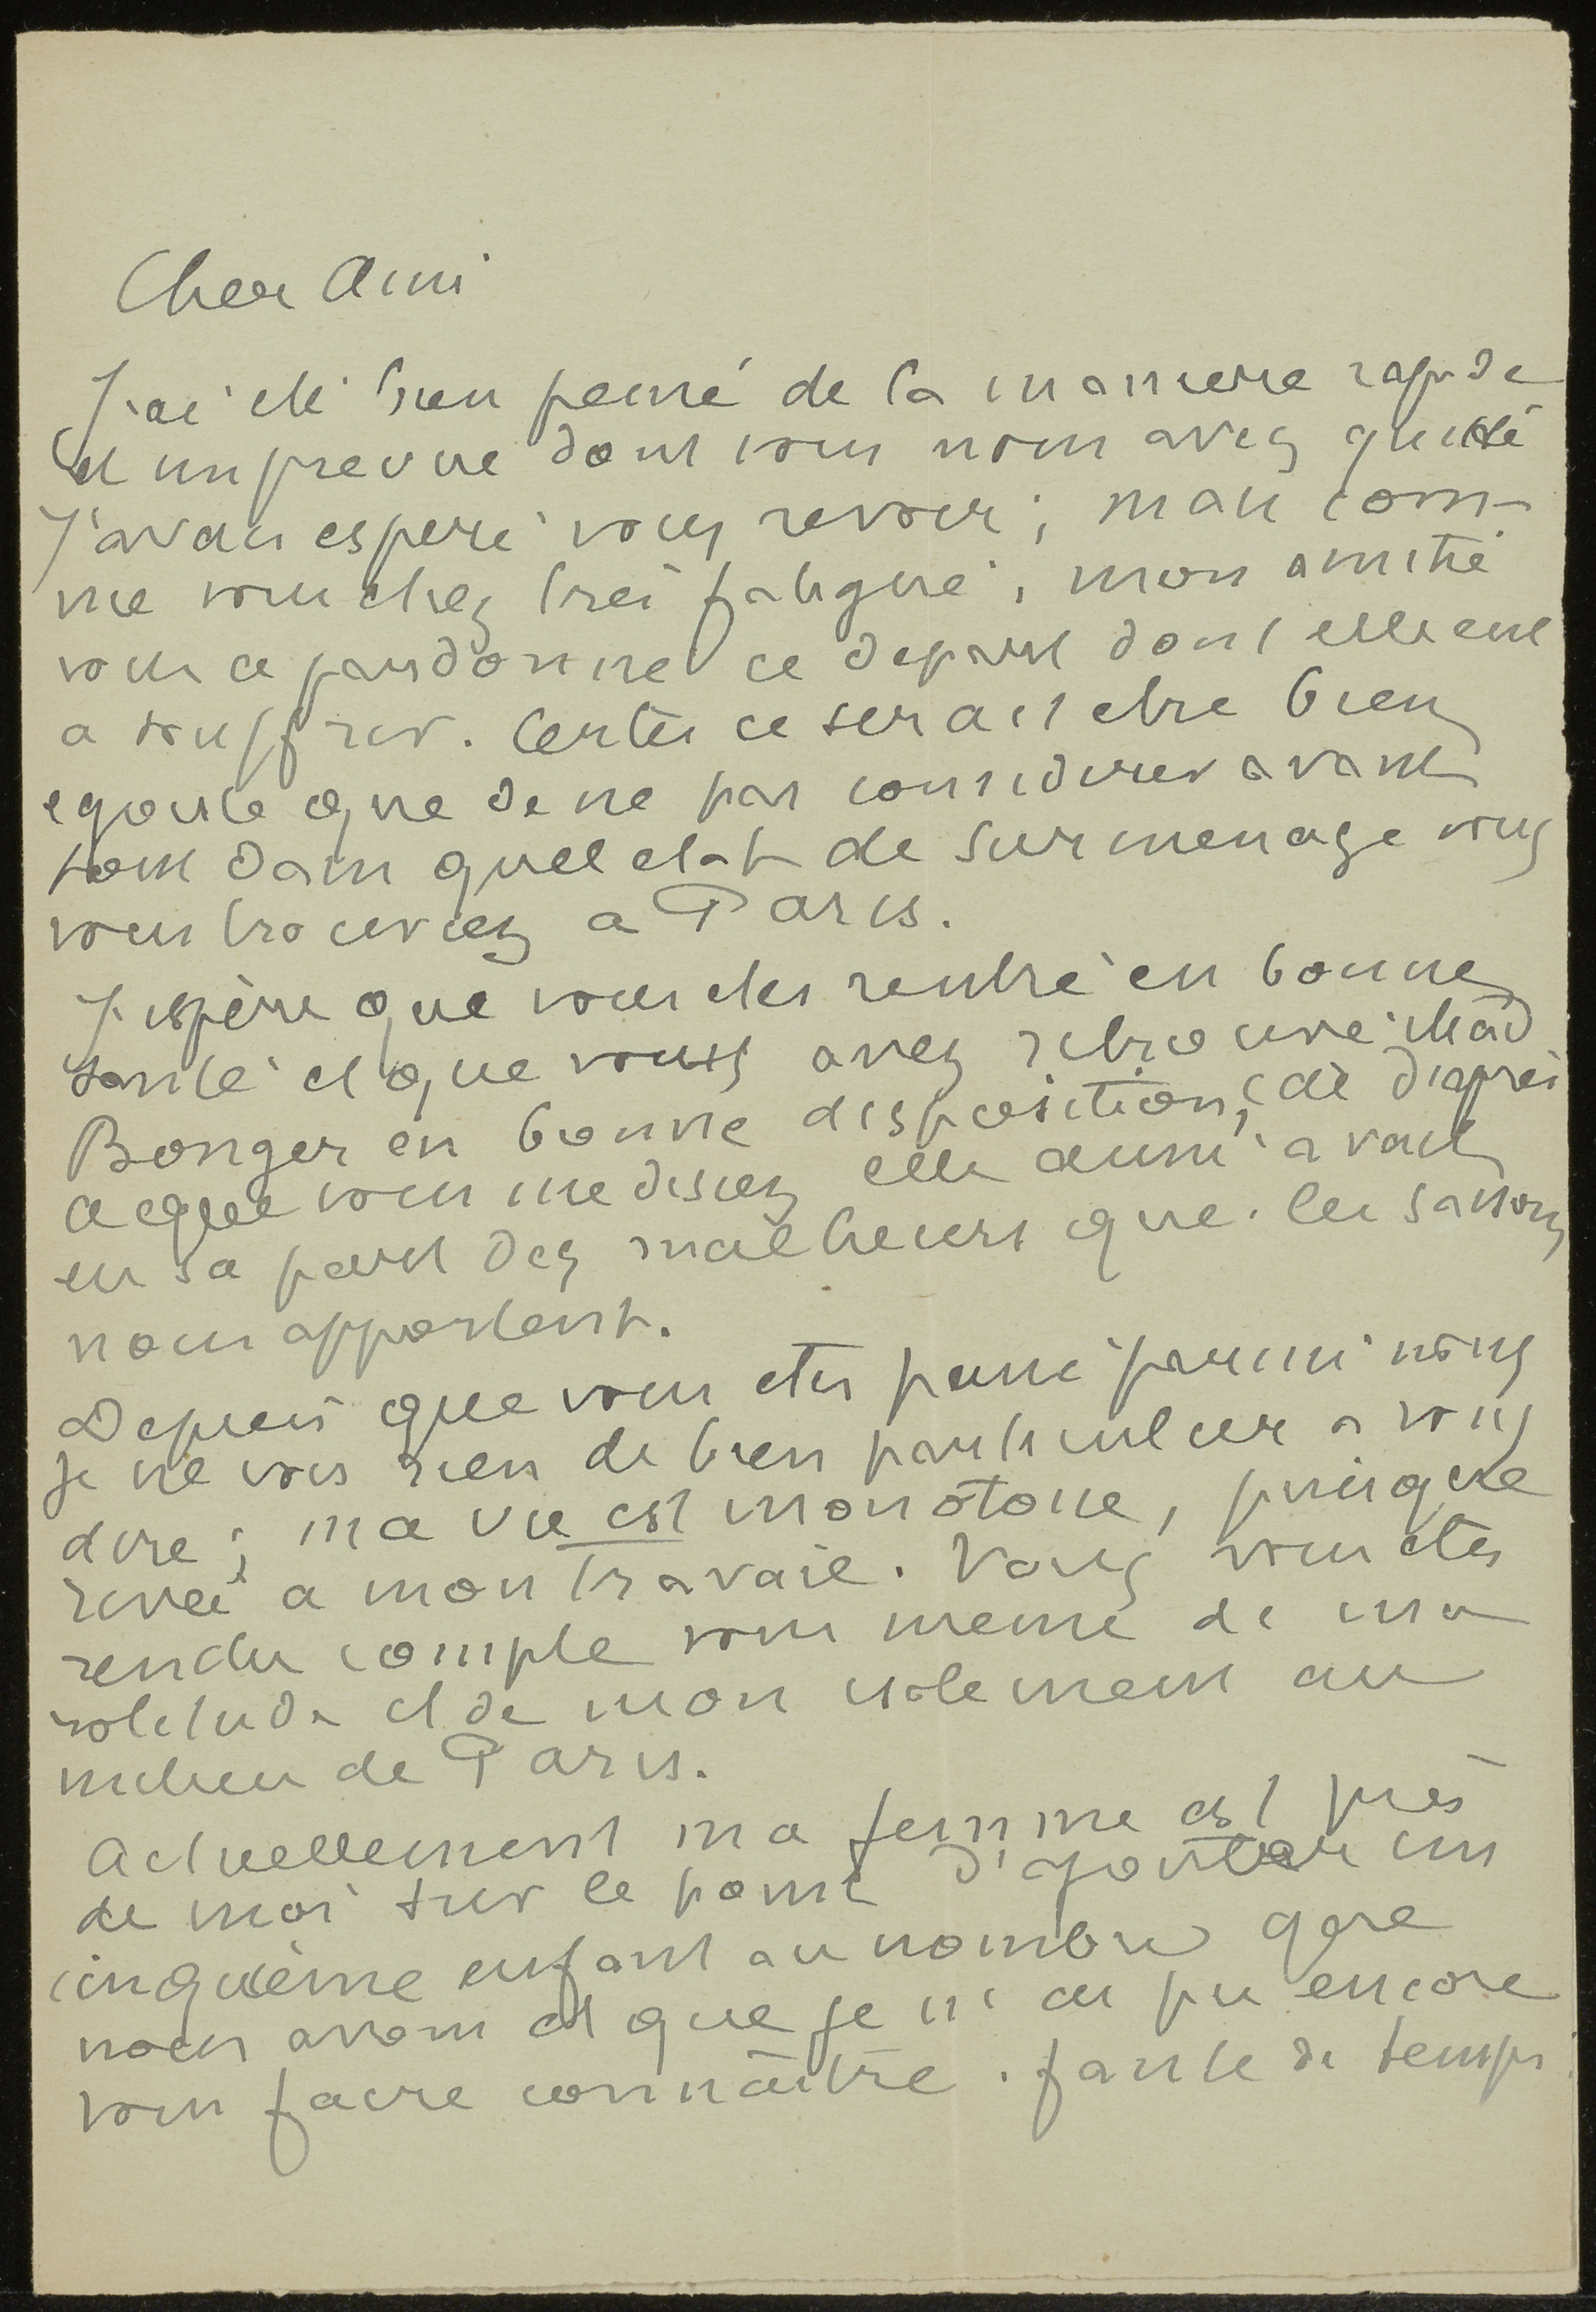 Cher Ami
J'ai été bien peiné de la maniere rapide
et imprevue dont vous nous avez quitté
J'avais esperé vous revoir ; mais com-
me vous etiez très fatigué, mon amitié
vous a pardonné ce depart dont elle eut
a souffrir. Certes ce serait etre bien
egoiste que de ne pas considerer avant
tout dans quel etat de surmenage vous
vous trouviez a Paris.
J'espère que vous etes rentré en bonne
santé et que vous avez retrouvé Mad
Bonger en bonne disposition, d'après
ce que vous me disiez elle aussi avait
eu sa part des malheurs que les saisons
nous apportent.
Depuis que vous etes passé parmi nous
je ne vois rien de bien particulier a vous
dire ; ma vie est monotone, puisque
rivé a mon travail. Vous vous etes
rendu compte vous meme de ma
solitude et de mon isolement au
milieu de Paris.
Actuellement ma femme est près
de moi sur le point d'ajouter un
cinquième enfant au nombre que
nous avons et que je n'ai pu encore
vous faire connaître. faute de temps